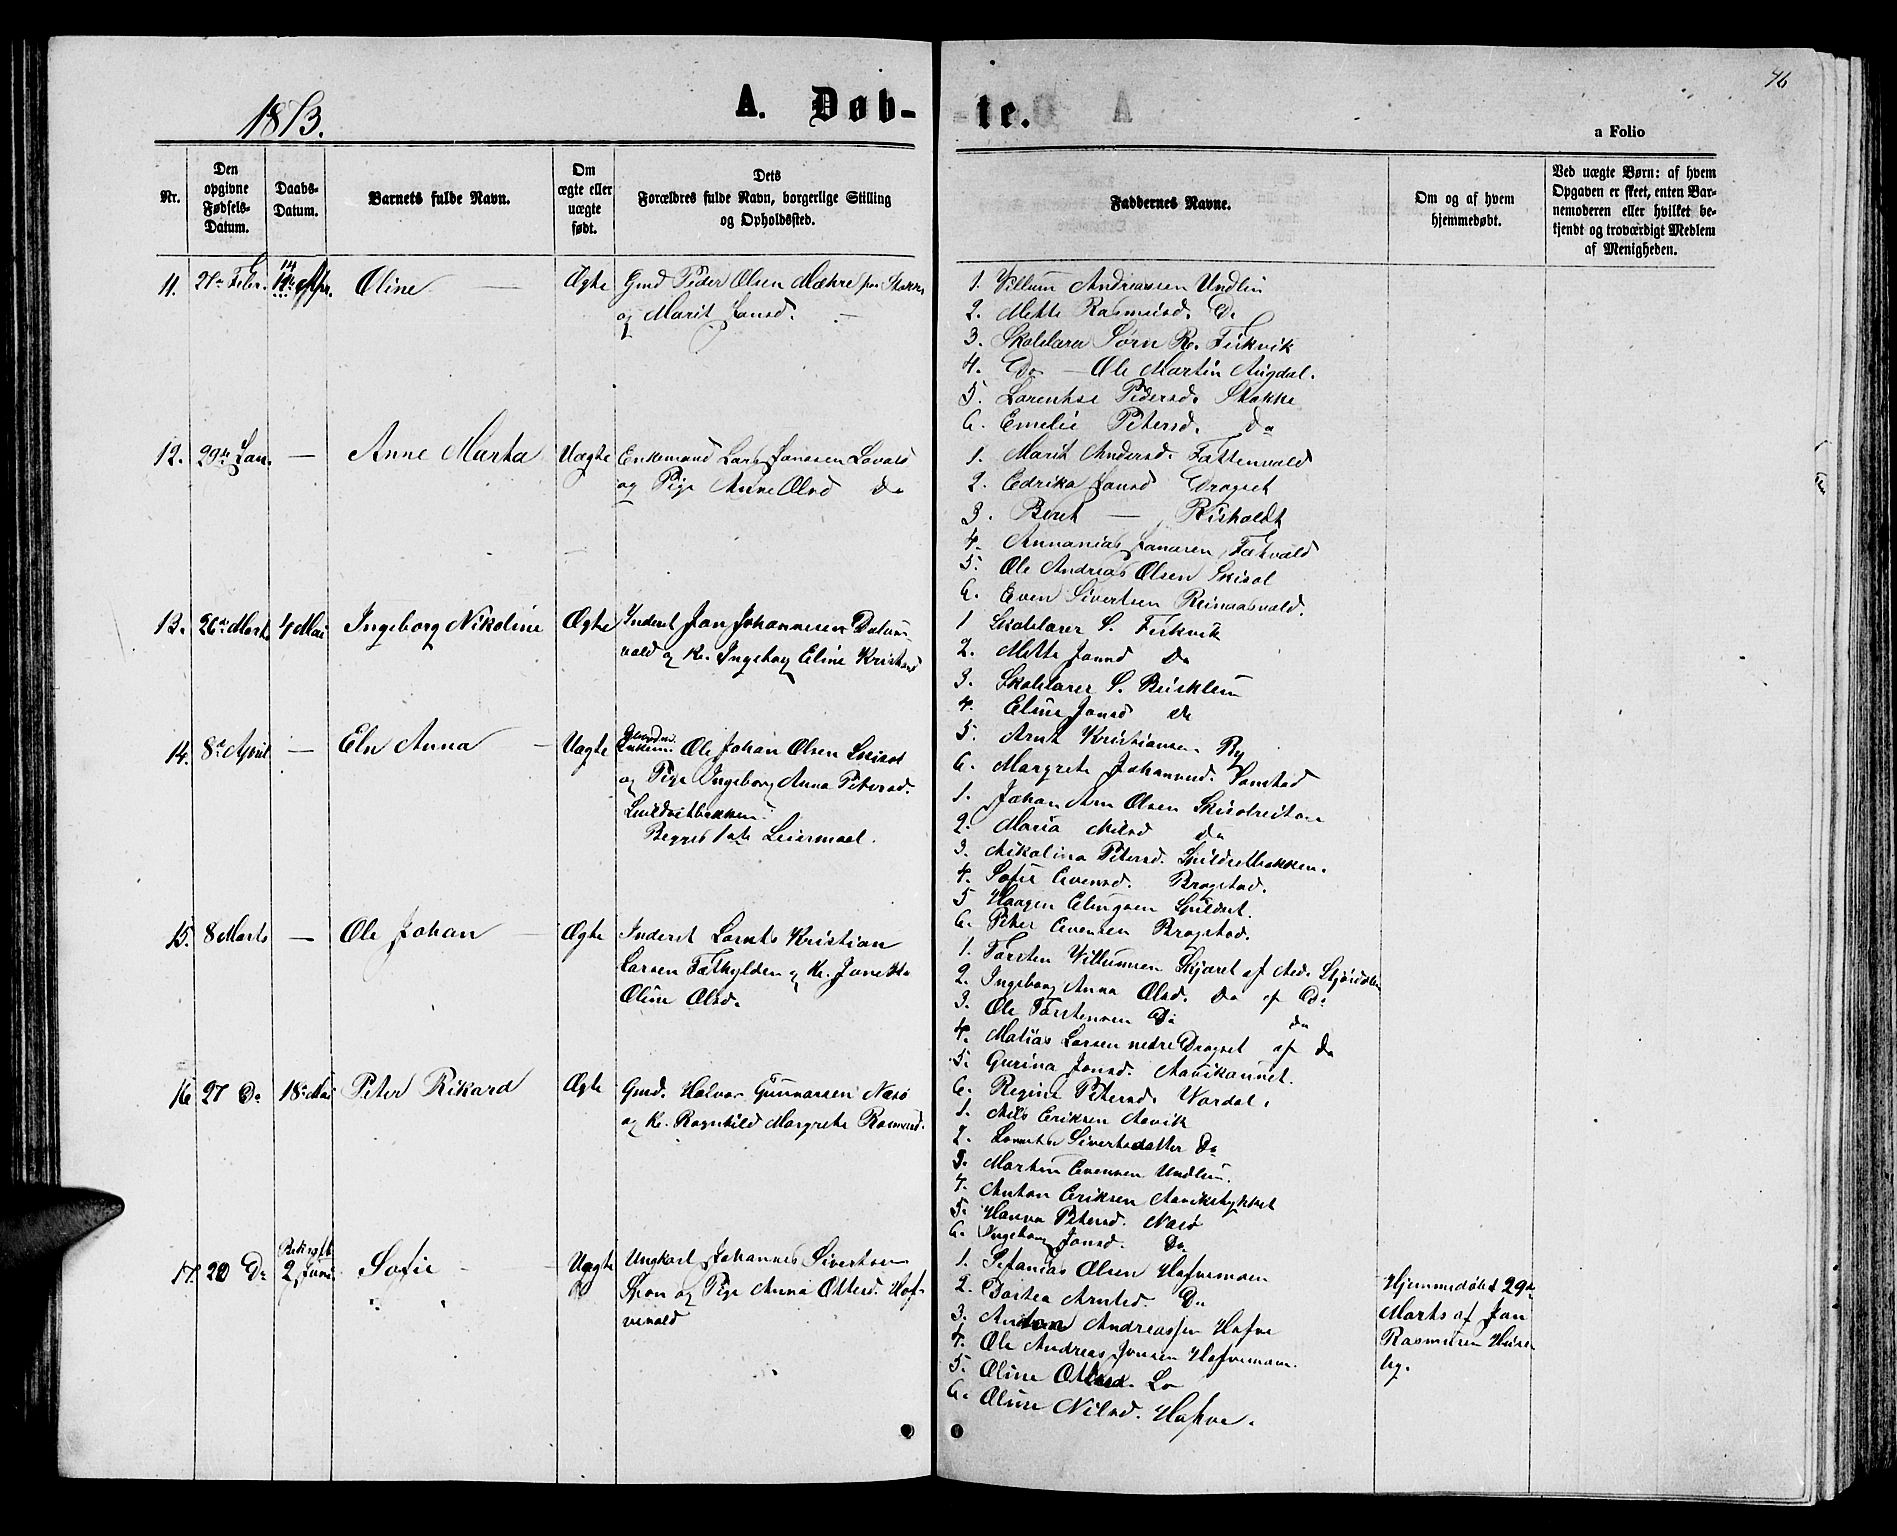 76
1873.
A. Døb-
te.
a Folio
Nr.
Den opgivne Fødsels-Datum.
Daabs-Datum.
Barnets fulde Navn.
Om ægte eller uægte født.
Dets Forældres fulde Navn, borgerlige Stilling og Opholdssted.
Faddernes Navne.
Om og af hvem hjemmedøbt.
Ved uægte Børn: af hvem Opgaven er skeet, enten Barnemoderen eller hvilket bekjendt og troværdigt Medlem af Menigheden.
11. 27de Febr. 14de Apr. Oline — Ægte Gmd Peder Olsen Mæhre
og Marit Jonsd. —
1. Villum Andreassen Undlin
2. Mette Rasmusd. Do
3. Skolelærer Sørn R. Fiskvik
4. Do — Ole Martin Augdal.
5. Lorentse Pedersd. Stokke
6. Emelie Petersd. Do
12. 29de Jan. — Anne Marta Uægte Enkemand Lars Jonassen Lovaas
og Pige Anne Olsd Do
1. Marit Andersd. Fættenvald
2. Edrika Jonsd Dragset
3. Beret —
4. Annanias Jonasen
5. Ole Andreas Olsen
6. Even Sivertsen Reinaasvald.
13. 26de Marts 4 Mai Ingeborg Nikoline Ægte Inderst Jon Johannesen
vald og K. Ingeborg Eline Kristensd
1 Skolelærer S. Fiskvik
2. Mette Jonsd Do
3. Skolelærer S.
4. Eline Jonsd Do
5. Arnt Kristiansen Ry
6. Margrete Johannesd. Vanstad
14. 8de April — Eln Anna — Uægte Ole Johan Olsen
og Pige Ingeborg Anna Petersd.
Begges 1ste Leiermaal.
1. Johan Arn Olsen
2. Maria Nilsd Do
3. Nikolina Petersd.
4. Sofie Evensd. Bragstad.
5 Haagen Elingsen
6. Peter Evensen Bragstad.
15. 8 Marts — Ole Johan — Ægte Inderst Lornts Kristian
Larsen og K.
Oline Olsd.
1. Torsten Villumsen af
2. Ingeborg Anna Olsd. Do af Do
3. Ole Torstensen Do Do
4. Matias Larsen nedre Dragset af Do
5. Gurina Jonsd.
6. Regine Petersd. Vordal.
16 27 Do 18de Mai Peter Rikard Ægte Gmd. Halvor Gunnarsen Næsø
og K. Ragnhild Margrete Rasmusd.
1. Nils Eriksen Aavik
2. Sivertsdatter Do
3. Martin Evensen Undlin.
4. Anton Eriksen Aavikstykket
5. Hanna Petersd. Næsø
6. Ingeborg Jonsd. Do
17. 20 Do 2 Juni Sofie — Uægte Ungkarl Johannes Sivertsen
og Pige Anna Ottersd. Haf-
venvald
1. Stefanias Olsen Hafvemoen
2. Arntsd. Do
3. Andreassen Hafve
4. Ole Andreas Jonsen Hafvemoen.
5. Oline
6. Oline Nilsd. Hafve.
Hjemmedøbt 29de
Marts af Jon
Rasmusen